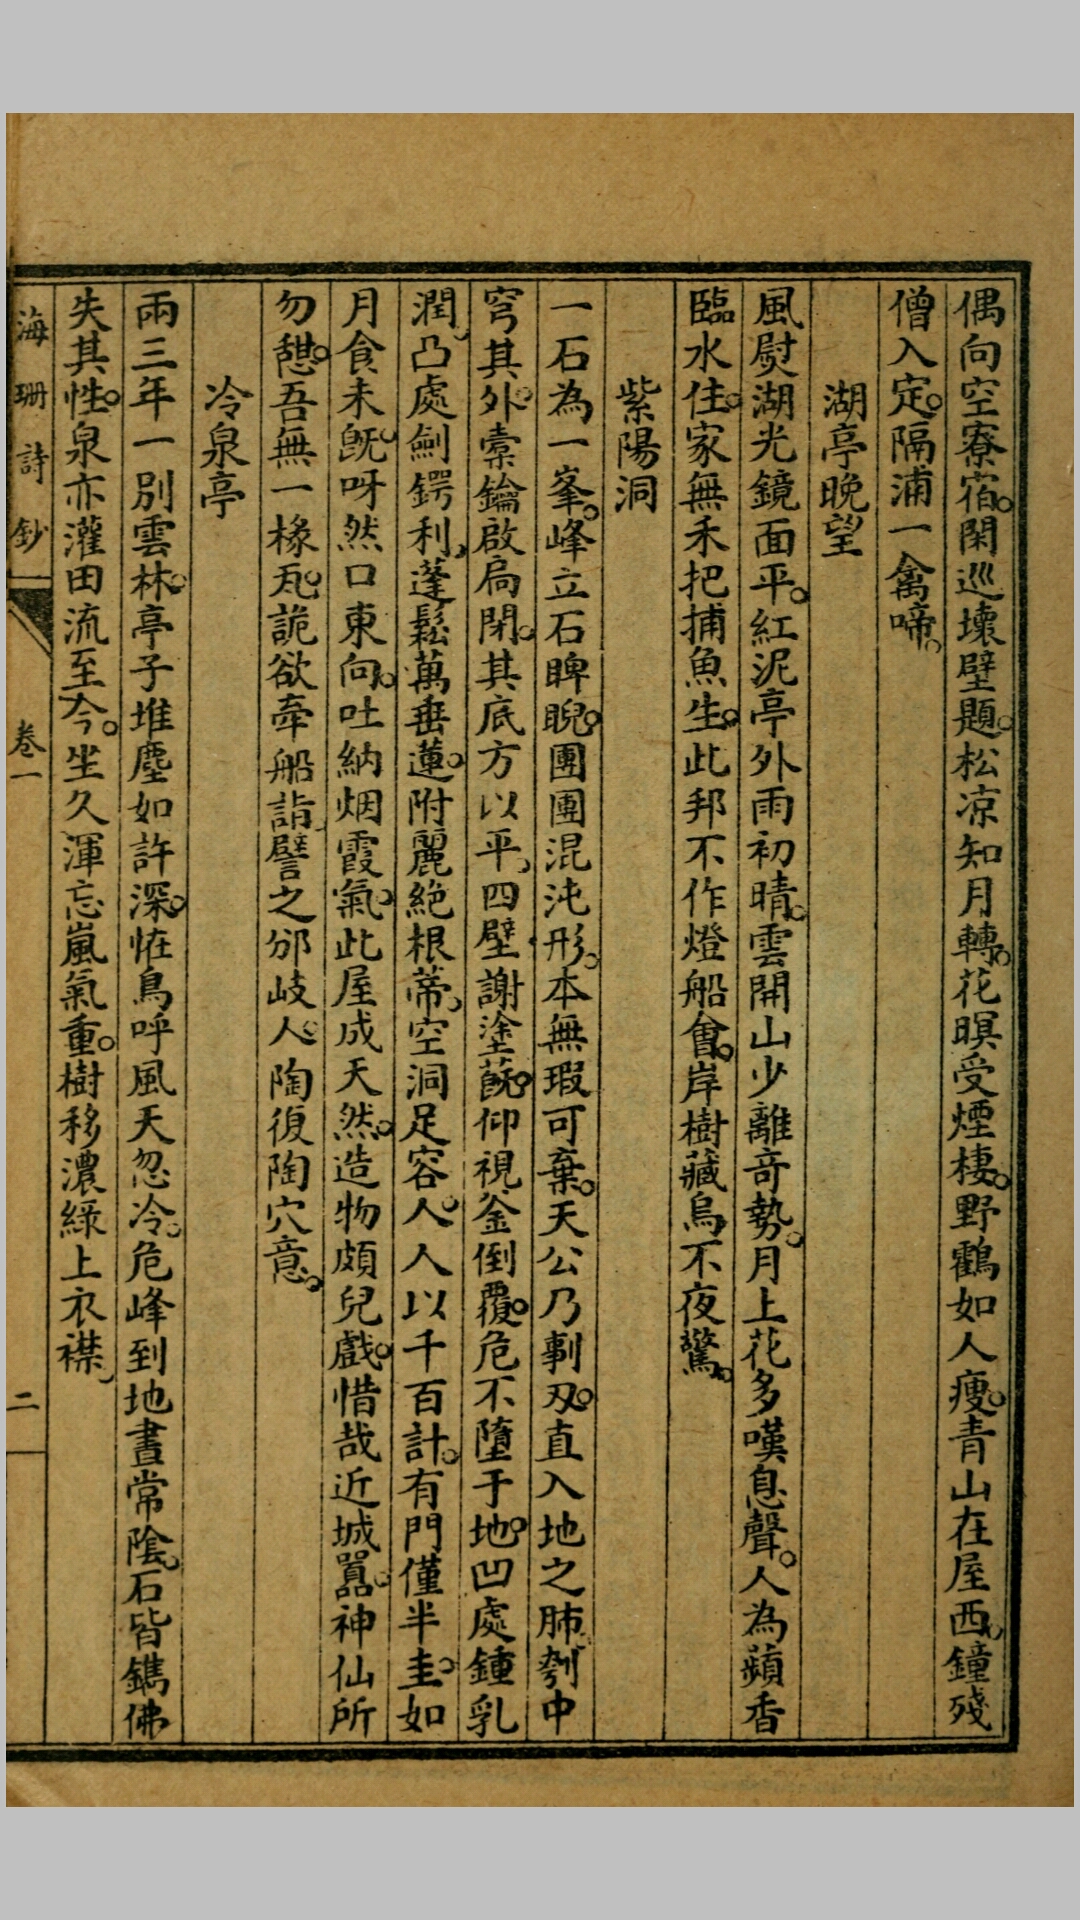 偶向空寮宿。閑巡壞壁題。松凉知月轉。花暝受煙棲。野鶴如人瘦。青山在屋西。鐘殘
僧入定。隔浦一禽啼。
湖亭晚望
風熨湖光鏡面平。紅泥亭外雨初晴。雲開山少離奇勢。月上花多嘆息聲。人為蘋香
臨水住。家無禾把捕魚生。此邦不作燈船會。岸樹藏烏不夜驚。
紫陽洞
一石為一峯。峰立石睥睨。團團混沌形。本無瑕可棄。天公乃剚刃。直入地之肺。刳中
穹其外。橐鑰啟扃閉。其底方以平。四壁謝塗蔇。仰視釜倒覆。危不墮于地。凹處鍾乳
潤。凸處劍鍔利。蓬鬆萬垂蓮。附麗絕根蒂。空洞足容人。人以千百計。有門僅半圭。如
月食未旣。呀然口東向。吐納烟霞氣。此屋成天然。造物頗兒戲。惜哉近城囂。神仙所
勿憩。吾無一椽瓦。詭欲牽船詣。譬之邠岐人。陶復陶穴意。
冷泉亭
兩三年一別雲林。亭子堆塵如許深。恠鳥呼風天忽冷。危峰到地晝常陰。石皆鐫佛
失其性。泉亦灌田流至今。坐久渾忘嵐氣重。樹移濃綠上衣襟。
海珊詩鈔
卷一
二